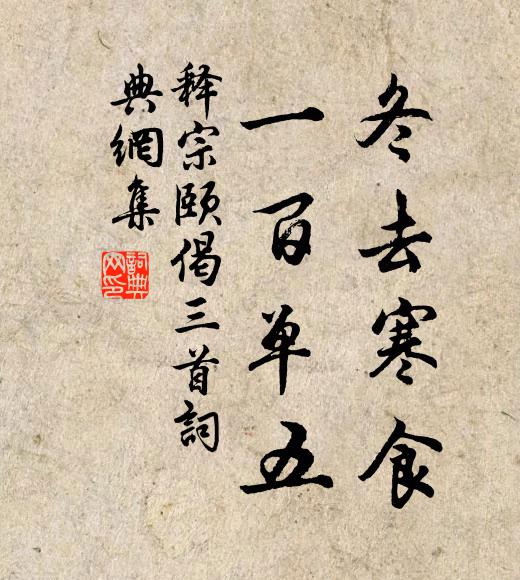 冬去寒食
一百单五
释宗颐偈三首詞
典網集
詞典
网印